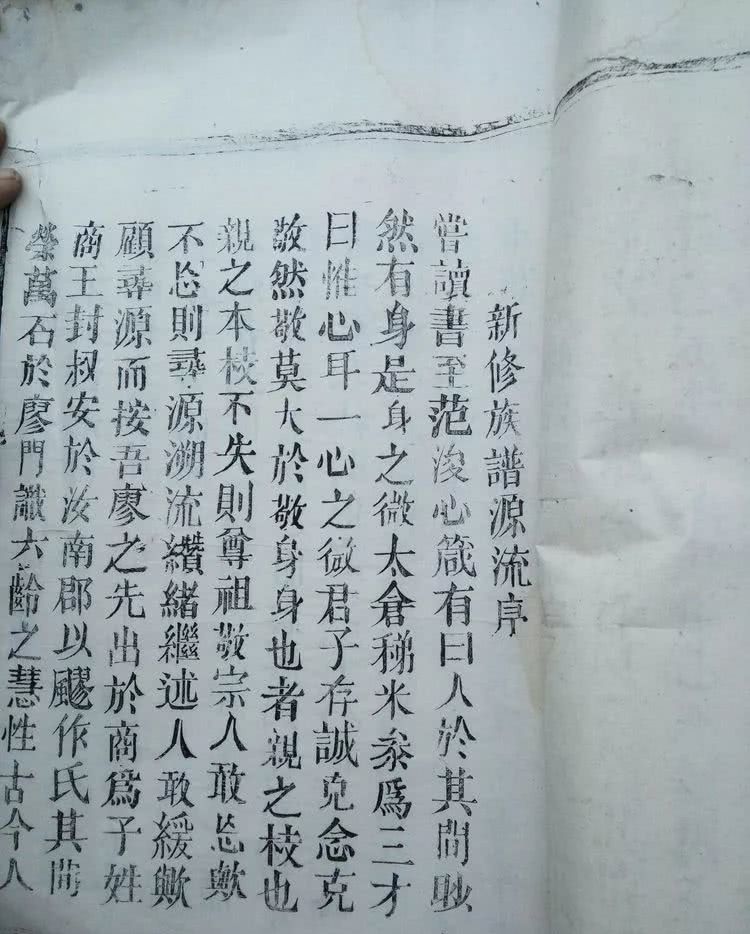 新修族譜源流序
嘗讀書至范浚心箴有曰人於其間眇
然有身是身之微太倉稊米叅爲三才
曰惟心耳一心之微君子存誠克念克
敬然敬莫大於敬身身也者親之枝也
親之本枝不失則尊祖敬宗人敢忘歟
不忘則尋源溯流纘緒繼述人敢緩歟
顧尋源而按吾廖之先出於商爲子姓
商王封叔安於汝南郡以飂作氏其間
榮萬石於廖門讖六齡之慧性古今人